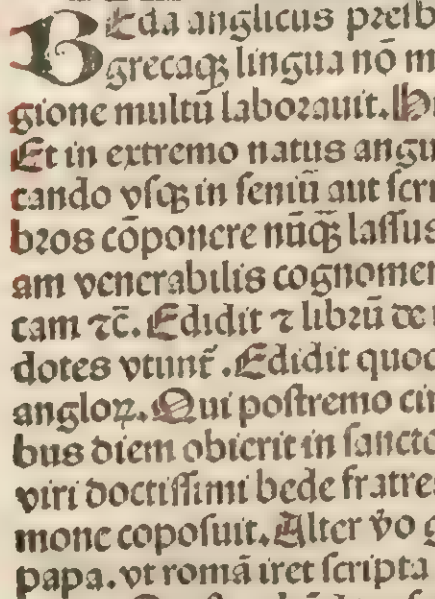 BEda anglicus preſb
grecaqꝫ lingua nō m
gione multū laborauit. H
Et in extremo natus angu
cando vſqꝫ in ſeniū aut ſcri
bros cōponere nūq̄ꝫ laſſus
am venerabilis cognomen
tam ⁊c̄. Edidit ⁊ librū de
dotes vtunt᷑. Edidit quoq
angloꝝ. Qui poſtremo cir
bus diem obierit in ſancto
viri doctiſſimi bede fratres
mone copoſuit. Alter v̄o g
papa. vt romā iret ſcripta